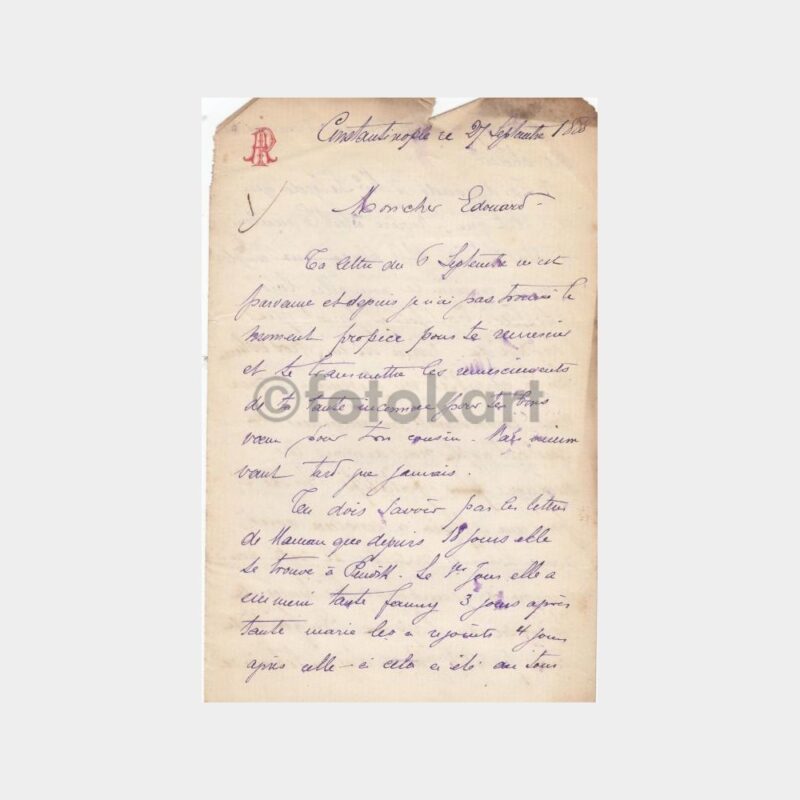 PR
Constantinople ce 27 Septembre 188
1)
Mon cher Edouard -
Ta lettre du 6 Septembre m'est
parvenue et depuis je n'ai pas trouvé le
moment propice pour te remercier
et te transmettre les remerciements
de ta tante inconnue pour tes bons
vœux pour ton cousin. Mais mieux
vaut tard que jamais.
Tu dois savoir par les lettres
de Maman que depuis 18 jours elle
se trouve à. Le 1er jour elle a
emmené tante fanny 3 jours après
tante marie les a rejoints 4 jours
après celle-ci cela a été au tour
©fotokart